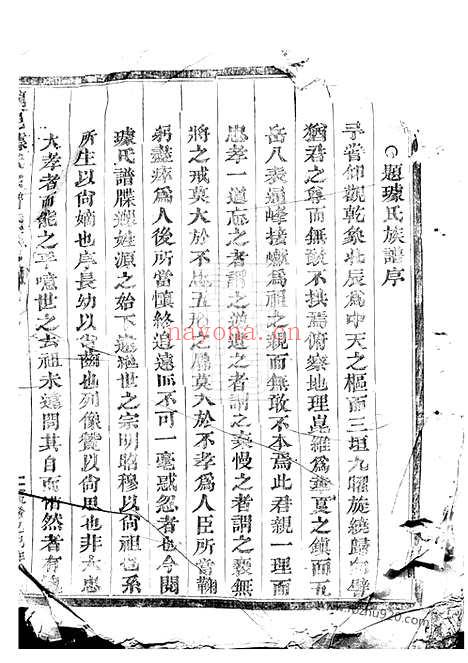 題璩氏族譜序
予嘗仰觀乾象北辰為中天之樞而三垣九曜旋繞歸向譬
猶君之尊而無敢不拱焉俯察地理崑崙為華夏之鎮而五
岳八表諸峰接巘為祖之親而無敢不本焉此君親一理而
忠孝一道忘之者謂之逆遺之者謂之棄慢之者謂之褻無
將之戒莫大於不忠五刑之屬莫大於不孝為人臣所當鞠
躬盡瘁為人後所當慎終追遠而不可一毫惑忽者也今閱
璩氏譜牒遡姓源之始下逮繼世之宗明昭穆以尚祖也系
所生以尚嫡也序長幼以尚齒也列像贊以尚思也非大忠
大孝者而能之乎噫世之去祖未遠問其自而懵然者有
nayona.cn